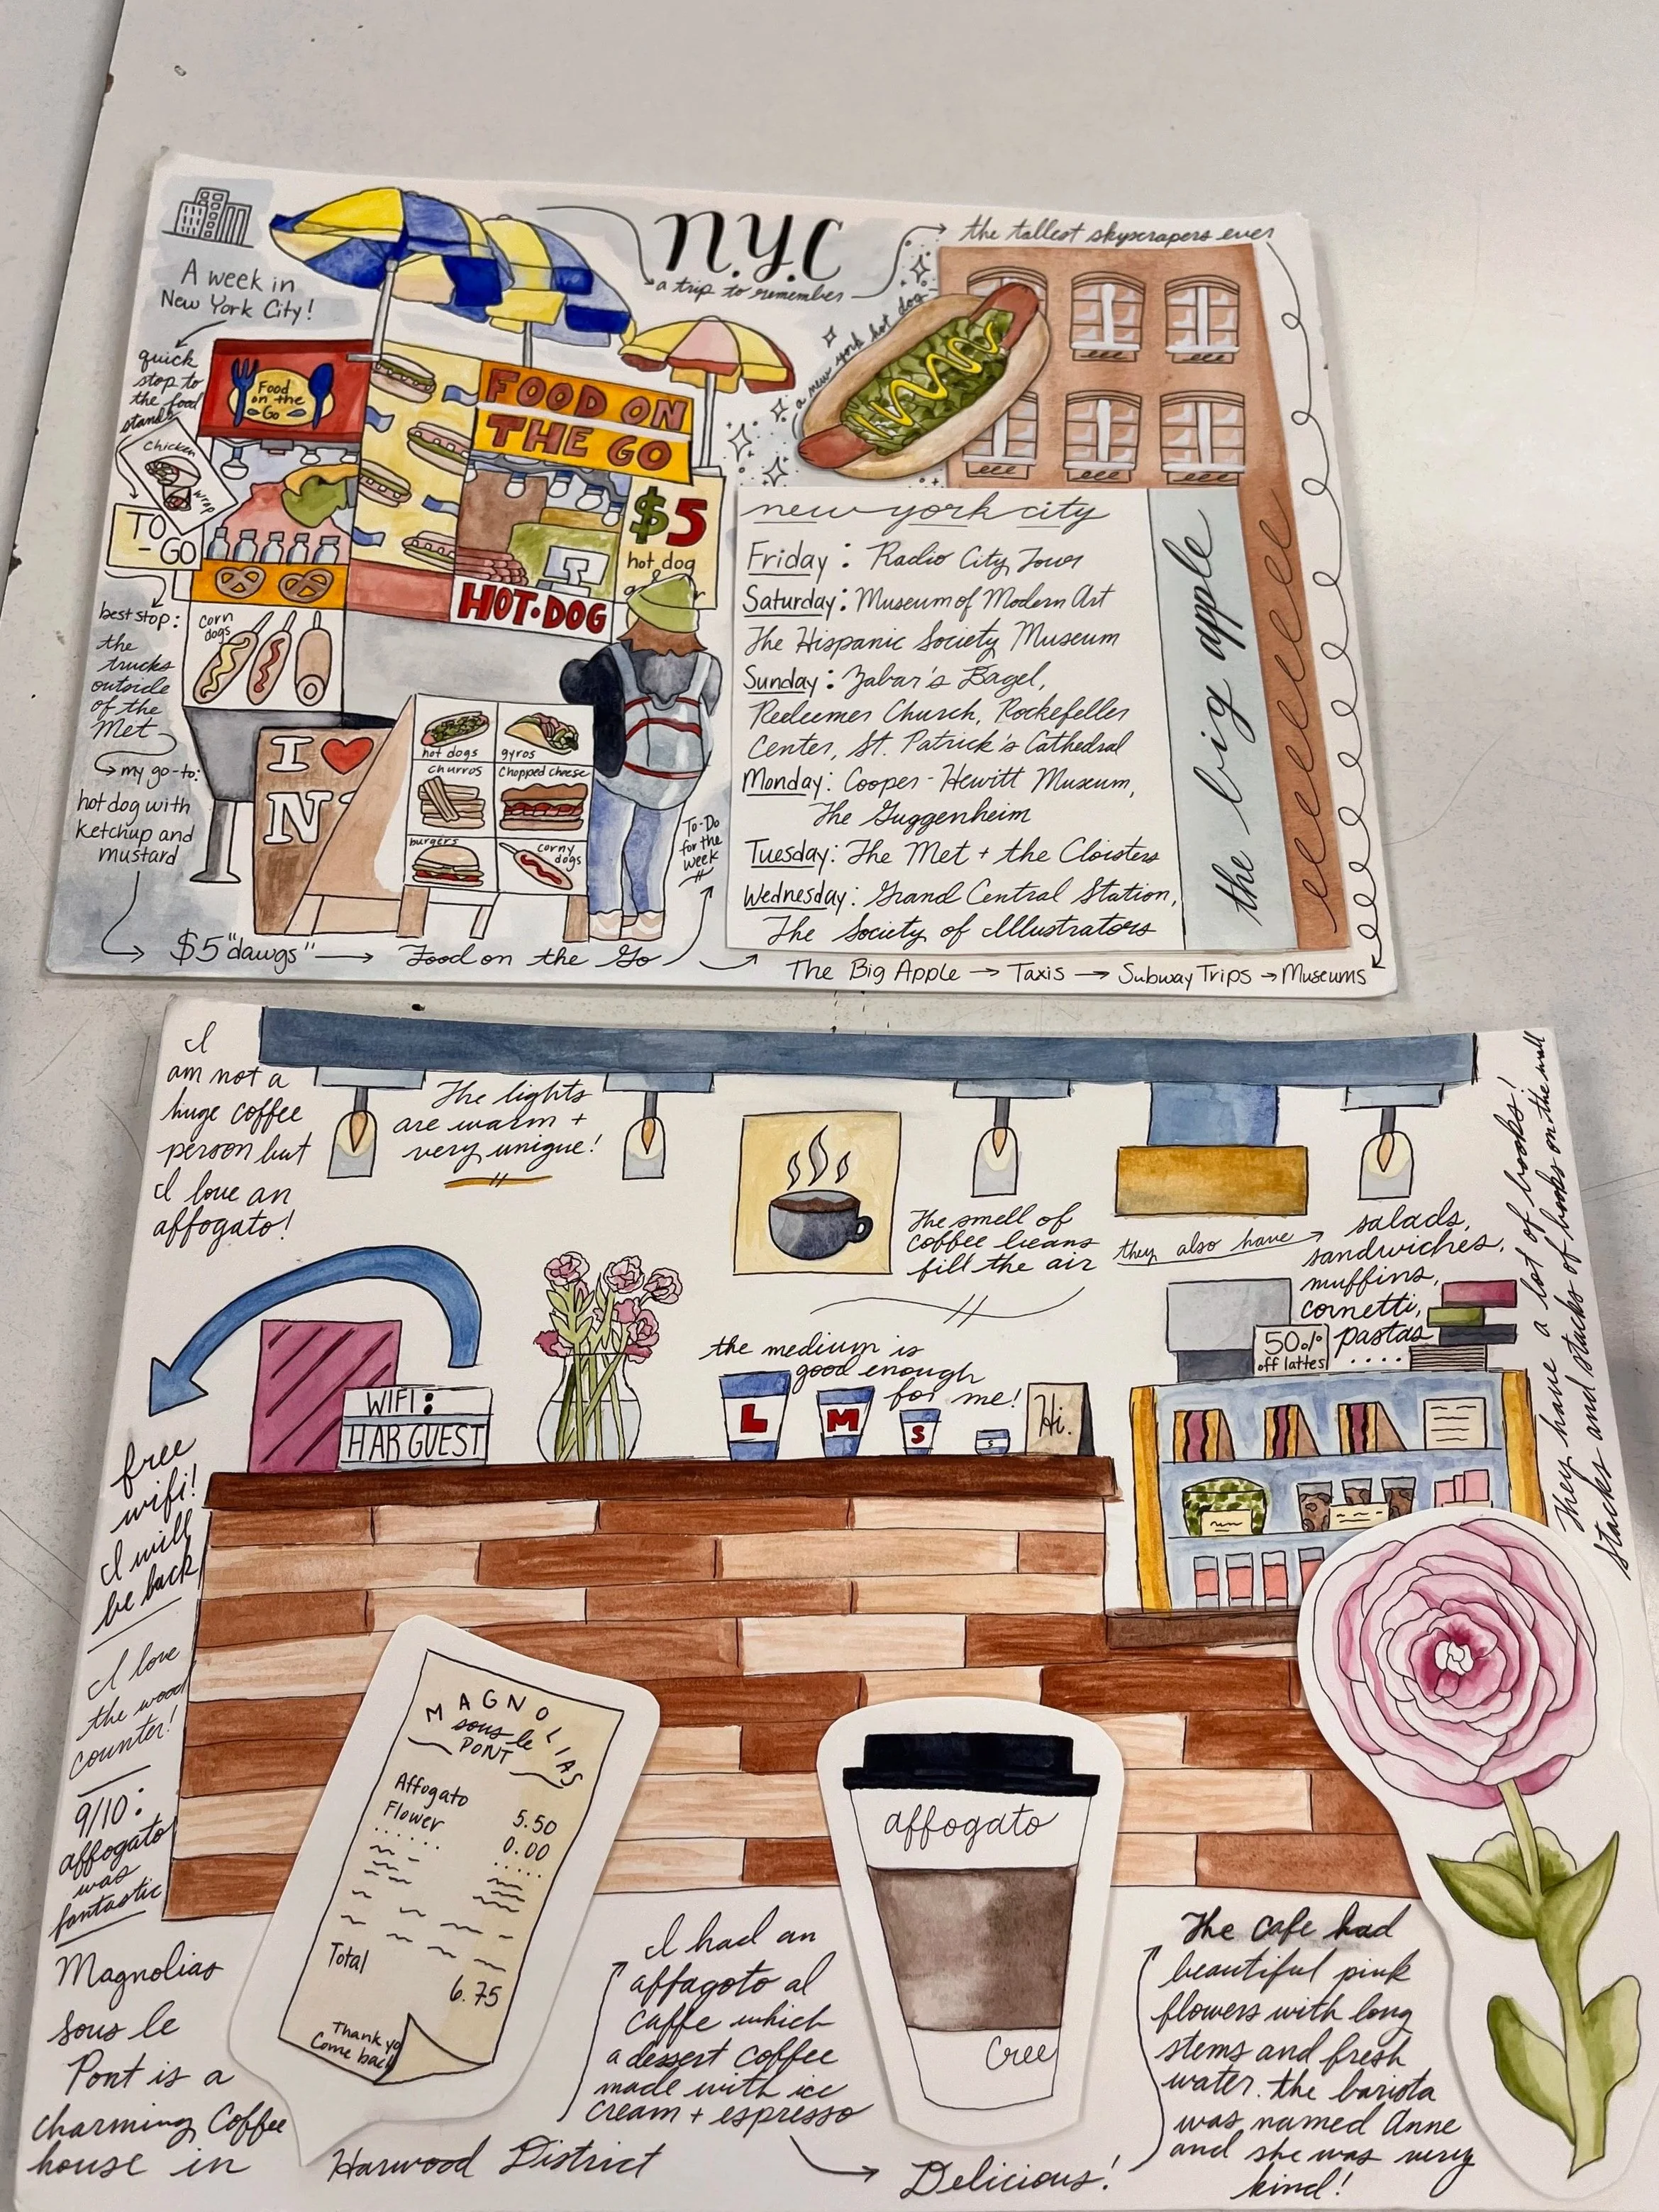 N.Y.C
a trip to remember
the tallest skyscrapers ever
a new york hot dog
A week in
New York City!
quick
stop to
the food
stands
Chicken
wrap
TO
-GO
Food
on the
Go
FOOD ON
THE GO
$5
hot dog
HOT·DOG
best stop:
the
trucks
outside
of the
Met
my go-to:
hot dog with
ketchup and
mustard
$5 "dawgs"
Food on the Go
corn
dogs
I
N
hot dogs
gyros
churros
Chopped cheese
burgers
corny
dogs
To-Do
for the
week
new york city
Friday: Radio City Tour
Saturday: Museum of Modern Art
The Hispanic Society Museum
Sunday: Zabar's Bagel,
Redeemer Church, Rockefeller
Center, St. Patrick's Cathedral
Monday: Cooper-Hewitt Museum,
The Guggenheim
Tuesday: The Met + the Cloisters
Wednesday: Grand Central Station,
The Society of Illustrators
the big apple
The Big Apple → Taxis → Subway Trips → Museums
I
am not a
huge coffee
person but
I love an
affogato!
The lights
are warm +
very unique!
The smell of
coffee beans
fill the air
they also have
salads,
sandwiches,
muffins,
cornetti,
pastas
....
They have a lot of books!
stacks and stacks of books on the wall
50%
off lattes
the medium is
good enough
for me!
L
M
S
S
Hi.
WIFI:
HAR GUEST
free
wifi!
I will
be back
I love
the wood
counter!
9/10:
affogato
was
fantastic
Magnolias
sous le
Pont is a
charming Coffee
house in
Harwood District
MAGNOLIAS
sous le
PONT
Affogato 5.50
Flower 0.00
Total
6.75
Thank yo
Come back
I had an
affagoto al
caffe which
a dessert coffee
made with ice
cream + espresso
Delicious!
affogato
Cree
The cafe had
beautiful pink
flowers with long
stems and fresh
water. the barista
was named Anne
and she was very
kind!